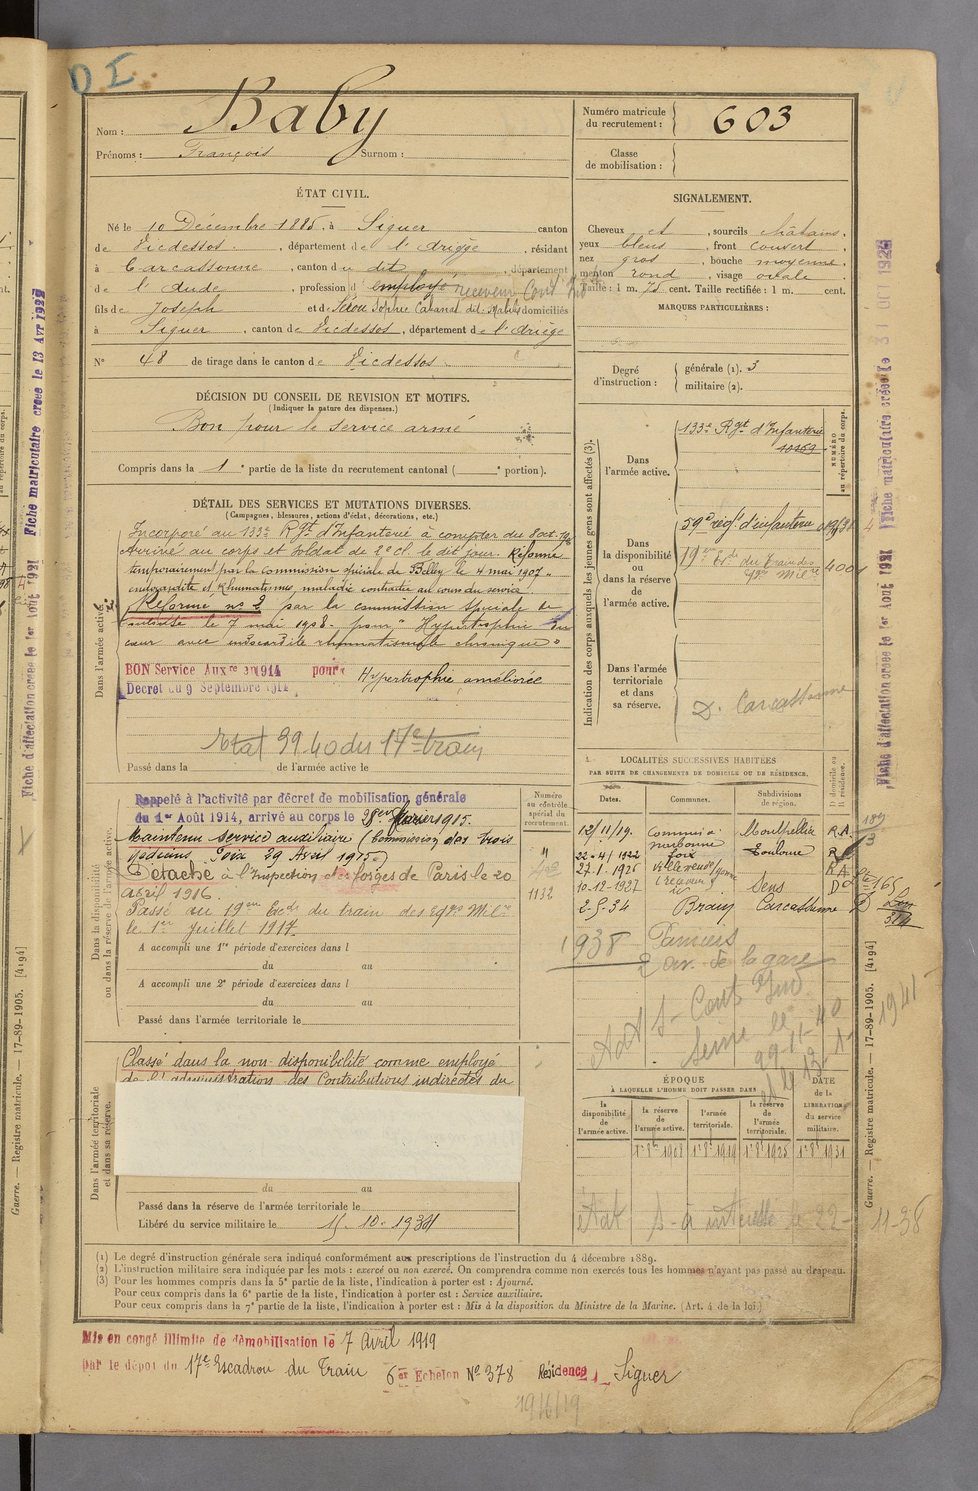 Nom : Baby
Prénoms : François Surnom :
Numéro matricule du recrutement : 603
Classe de mobilisation :
ÉTAT CIVIL.
Né le 10 Décembre 1885, à Siguer canton
de Vicdessos, département de l'Ariège, résidant
à Carcassonne, canton du dit, département
de l'Aude, profession d'employé receveur Cont. Ind
fils de Joseph et de domiciliés
à Siguer, canton de Vicdessos, département de l'Ariège
N° 48 de tirage dans le canton de Vicdessos.
SIGNALEMENT.
Cheveux et , sourcils châtains,
yeux bleus , front couvert ,
nez gros , bouche moyenne,
menton rond , visage ovale .
Taille : 1 m. 75 cent. Taille rectifiée : 1 m. cent.
MARQUES PARTICULIÈRES :
Degré d'instruction : générale (1). 3
militaire (2).
DÉCISION DU CONSEIL DE REVISION ET MOTIFS.
(Indiquer la nature des dispenses.)
Bon pour le service armé
Compris dans la 1e partie de la liste du recrutement cantonal ( e portion).
DÉTAIL DES SERVICES ET MUTATIONS DIVERSES.
(Campagnes, blessures, actions d'éclat, décorations, etc.)
Dans l'armée active.
Incorporé au 133e Rgt d'Infanterie à compter du 8 oct.
Arrivé au corps et soldat de 2e cl. le dit jour. Réformé
temporairement par la commission spéciale de Belley le 4 mai 1907
endocardite et Rhumatismes, maladie contractée au cours du service.
Réformé n° 2 par la commission spéciale de
le 7 mai 1908 pour "Hypertrophie du
cœur avec endocardite rhumatismale chronique"
BON Service Aux 1914 pour Hypertrophie améliorée
Décret du 9 Septembre 1914
Etat 39-40 du 17e train
Passé dans la de l'armée active le
Indication des corps auxquels les jeunes gens sont affectés (3).
NUMÉRO au répertoire du corps.
Dans l'armée active.
133e Rgt d'Infanterie
10169
Dans la disponibilité ou dans la réserve de l'armée active.
59e régt d'infanterie
19e Ec. du Train des Eqs Milre
Dans l'armée territoriale et dans sa réserve.
D. Carcassonne
Dans la disponibilité ou dans la réserve de l'armée active.
Rappelé à l'activité par décret de mobilisation générale
du 1er Août 1914, arrivé au corps le 28 février 1915.
Maintenu service auxiliaire (Commission des trois
médecins Foix 29 Avril 1915)
Détaché à l'Inspection des forges de Paris le 20
avril 1916.
Passé au 19em Ec. du train des Eqpes Milres
le 1er juillet 1917.
A accompli une 1re période d'exercices dans l
du au
A accompli une 2e période d'exercices dans l
du au
Passé dans l'armée territoriale le
Numéro au contrôle spécial du recrutement.
1132
LOCALITÉS SUCCESSIVES HABITÉES
PAR SUITE DE CHANGEMENTS DE DOMICILE OU DE RÉSIDENCE.
Dates. Communes. Subdivisions de région. D domicile ou R résidence.
12/11/19. narbonne Montpellier R.
22-4/1922 foix Toulouse R
27-1-1926 Villeneuve/Yonne R
10-12-1927 Sens D
2-5-34 Bram Carcassonne D
1938 Pamiers
2 av. de la gare
Dans l'armée territoriale et dans sa réserve.
Classé dans la non-disponibilité comme employé
de l'administration des Contributions indirectes du
du au
Passé dans la réserve de l'armée territoriale le
Libéré du service militaire le 15-10-1934
ÉPOQUE
À LAQUELLE L'HOMME DOIT PASSER DANS
la disponibilité de l'armée active.
la réserve de l'armée active.
l'armée territoriale.
la réserve de l'armée territoriale.
DATE de la LIBÉRATION du service militaire.
1er 8bre 1908 1er 8bre 1919 1er 8bre 1925 1er 8bre 1931
état S-à intéressé le 22-11-38
(1) Le degré d'instruction générale sera indiqué conformément aux prescriptions de l'instruction du 4 décembre 1889.
(2) L'instruction militaire sera indiquée par les mots : exercé ou non exercé. On comprendra comme non exercés tous les hommes n'ayant pas passé au drapeau.
(3) Pour les hommes compris dans la 5e partie de la liste, l'indication à porter est : Ajourné.
Pour ceux compris dans la 6e partie de la liste, l'indication à porter est : Service auxiliaire.
Pour ceux compris dans la 7e partie de la liste, l'indication à porter est : Mis à la disposition du Ministre de la Marine. (Art. 4 de la loi.)
Mis en congé illimité de démobilisation le 7 Avril 1919
par le dépôt du 17e Escadron du Train 6e Echelon N° 378 Résidence Siguer
Guerre. — Registre matricule. — 17-89-1905. [4194]
Fiche d'affectation créée le 1er Août 1921
Fiche matriculaire créée le
1941
Guerre. — Registre matricule. — 17-89-1905. [4194]
Fiche d'affectation créée le 1er Août 1921
Fiche matriculaire créée le 13 Avr